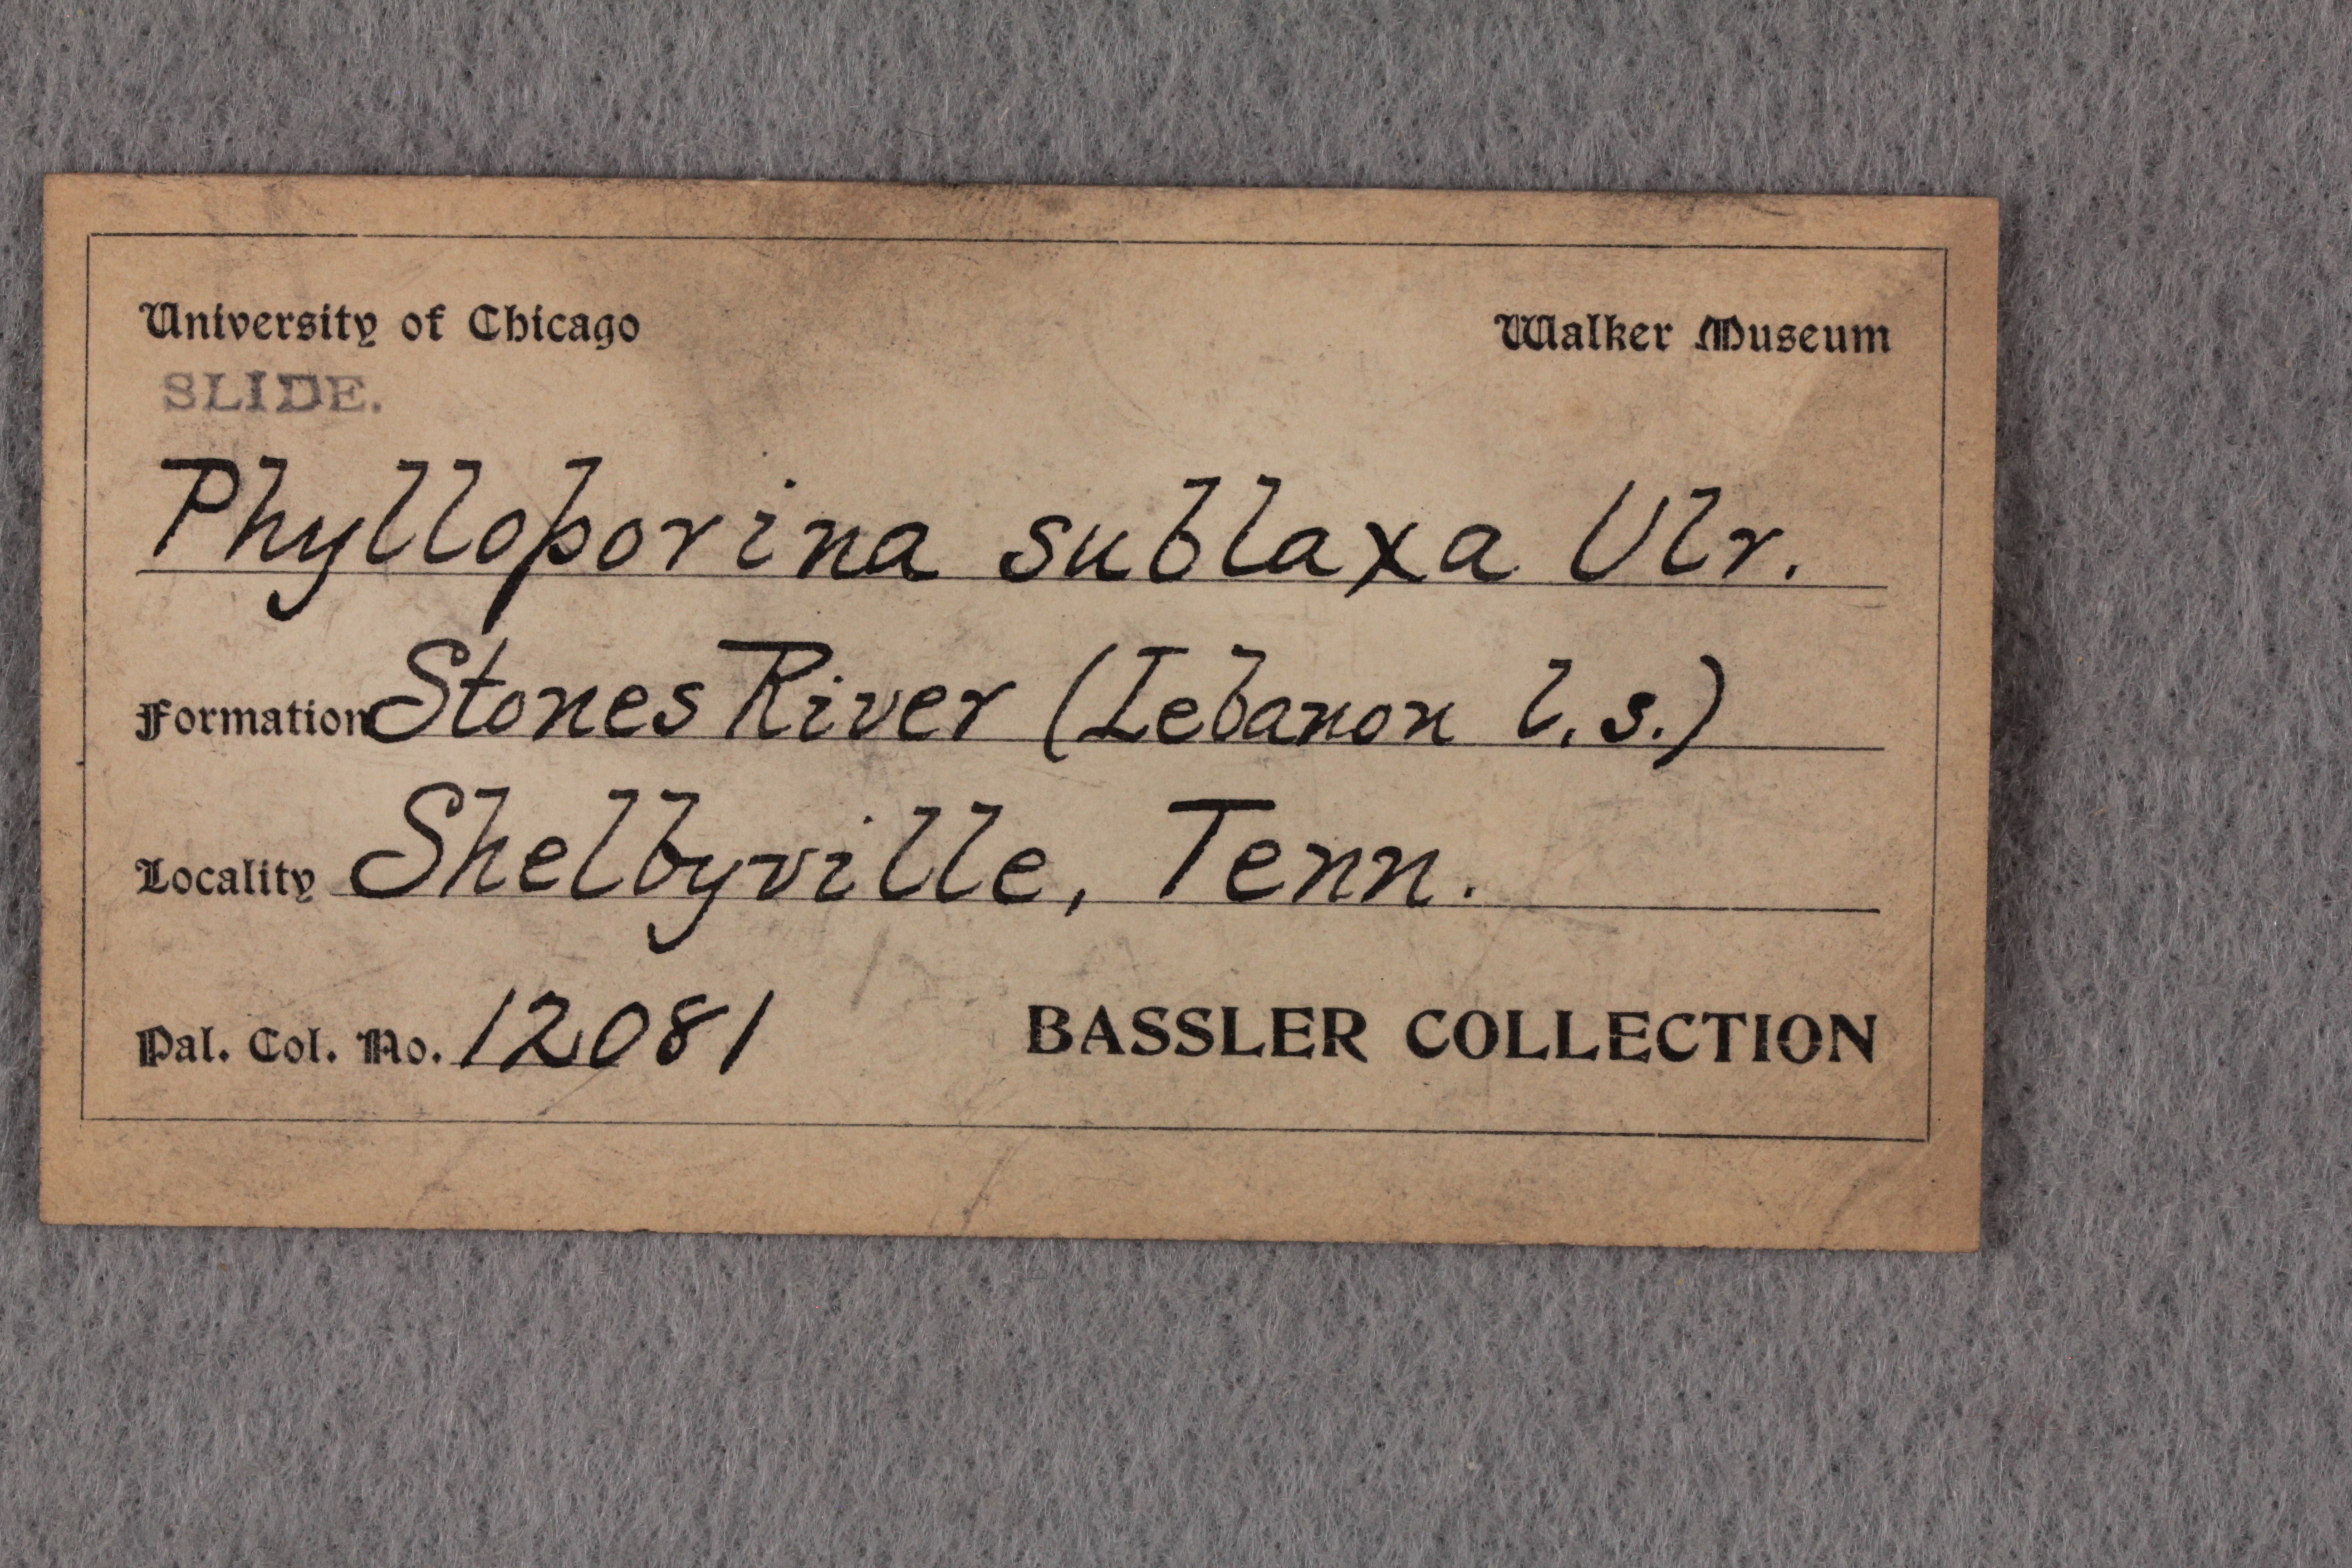 University of Chicago Walker Museum
SLIDE.
Phylloporina sublaxa Ulr.
Formation Stones River (Lebanon l.s.)
Locality Shelbyville, Tenn.
Pal. Col. No. 12081 BASSLER COLLECTION